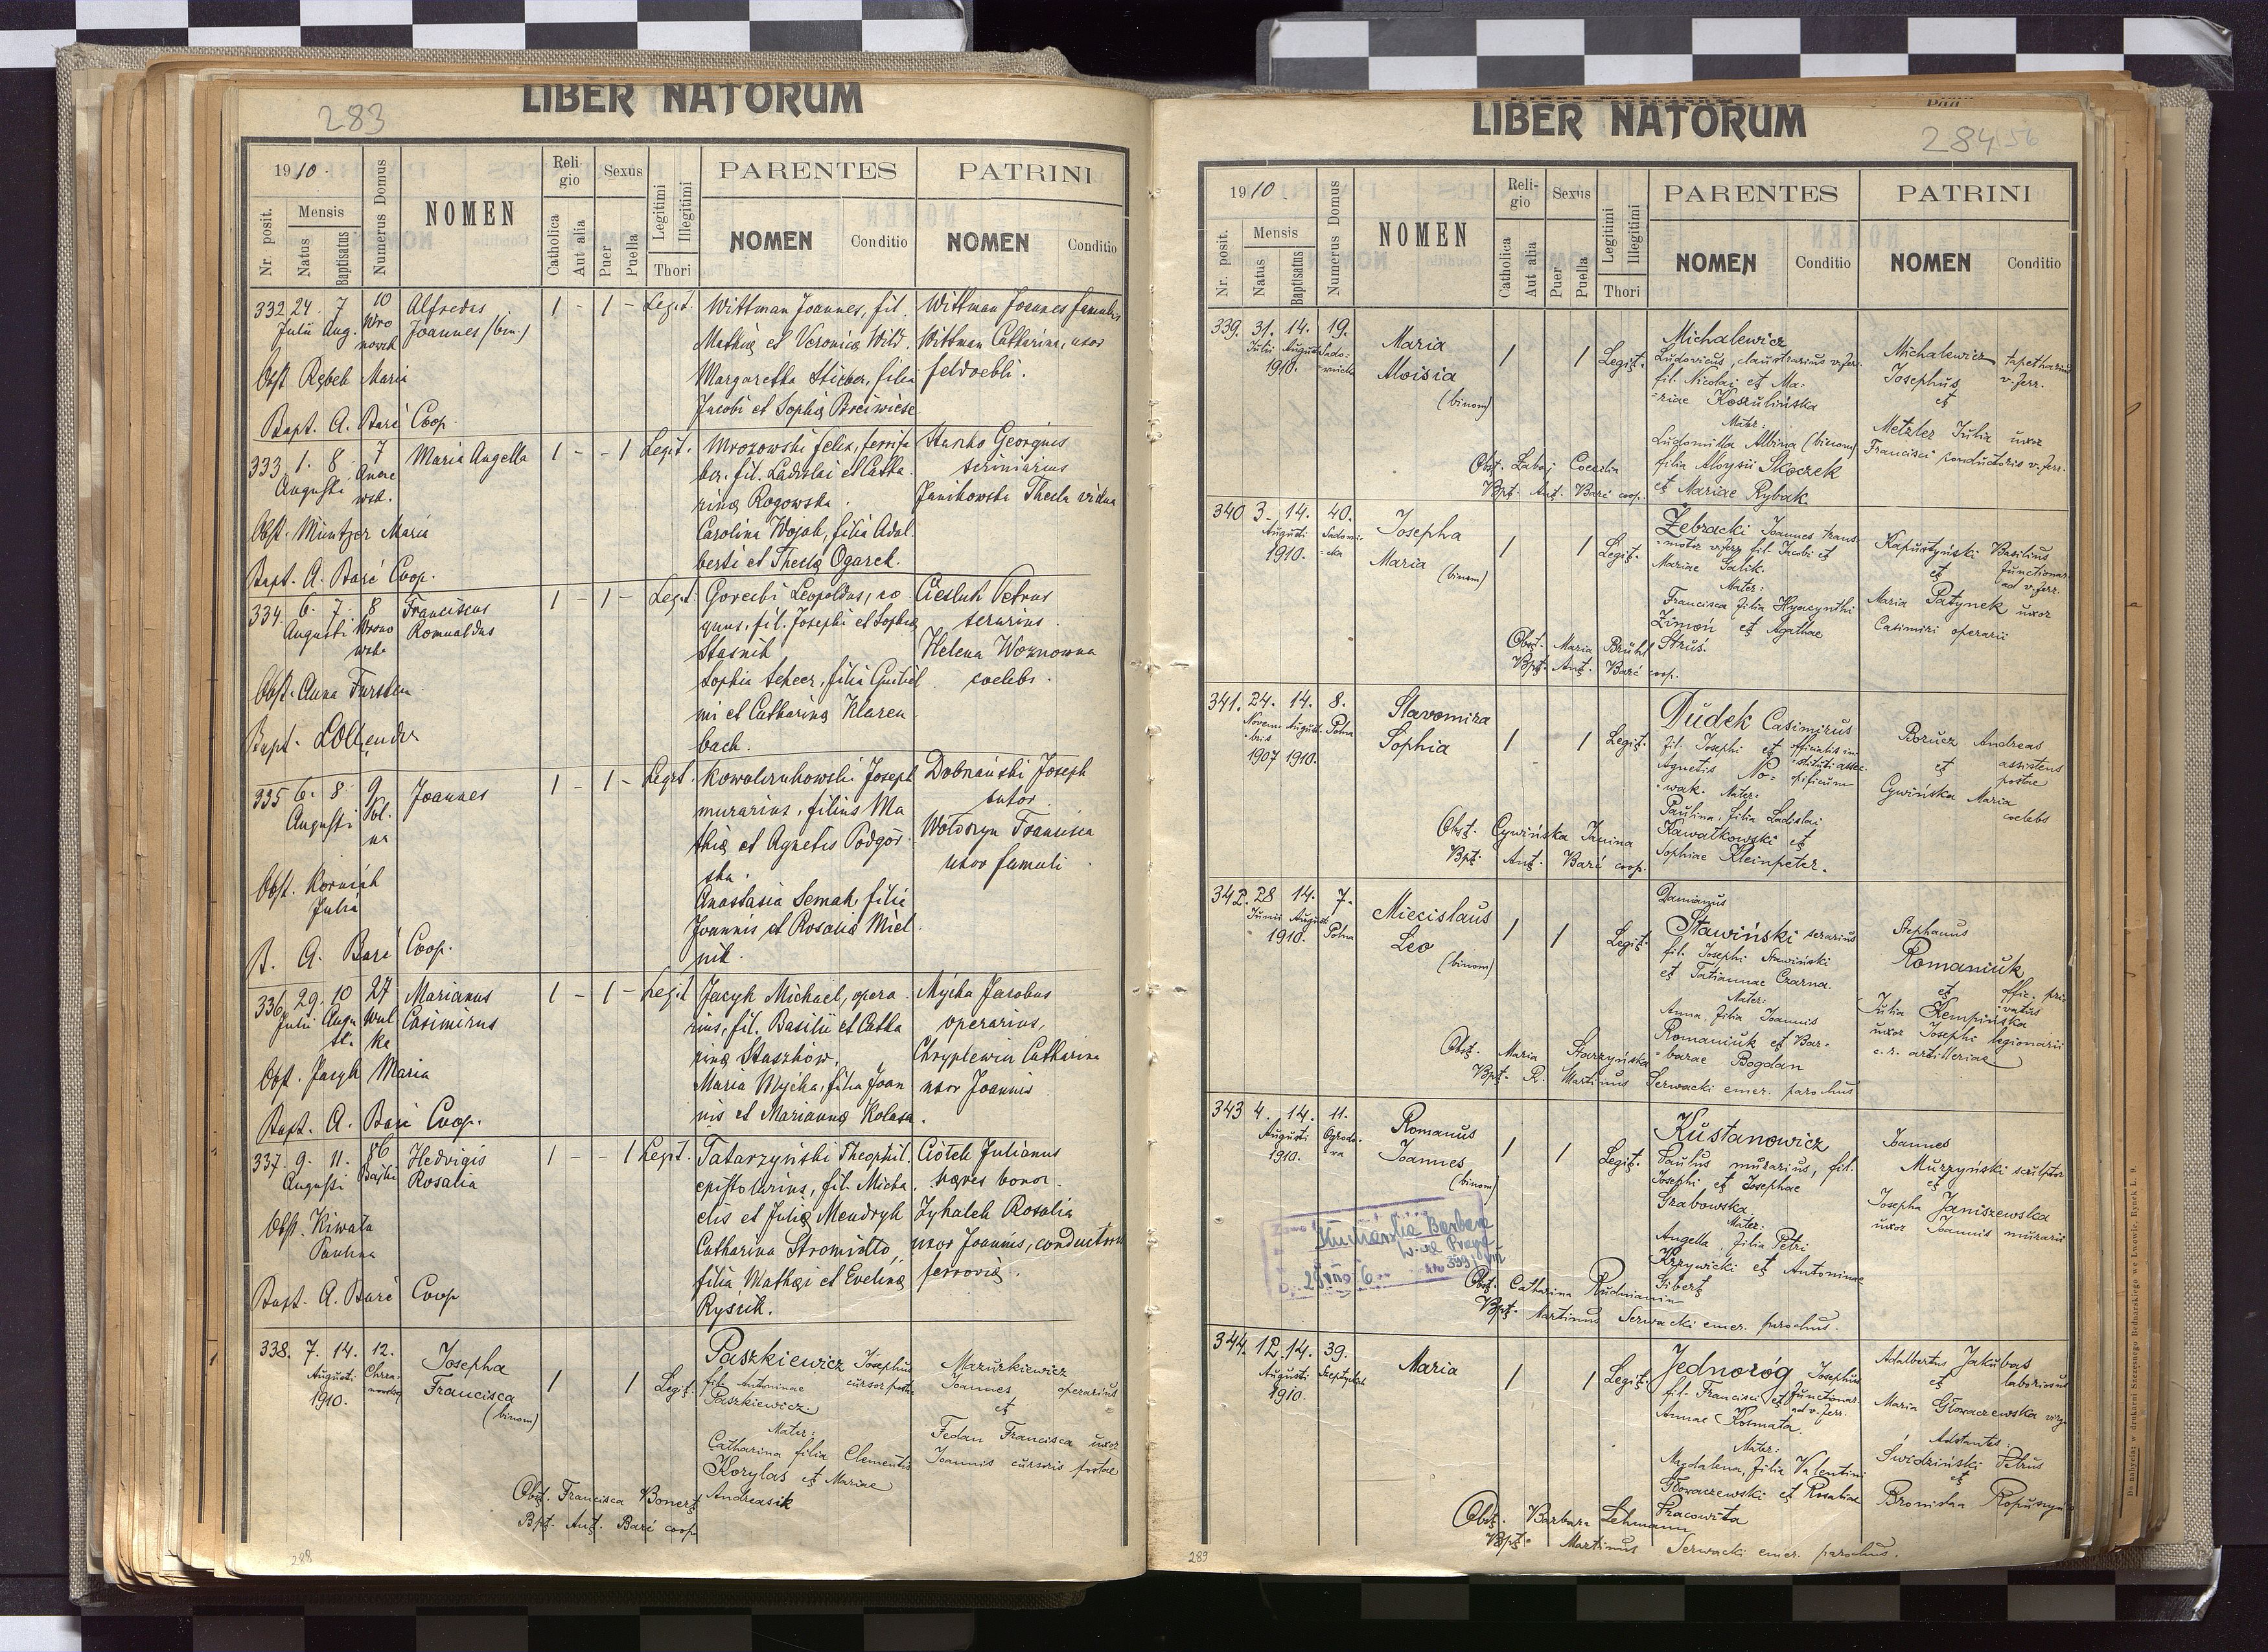 LIBER NATORUM
283
1910.
Nr. posit.
Mensis
Natus
Baptisatus
Numerus Domus
NOMEN
Religio
Catholica
Aut alia
Sexus
Puer
Puella
Legitimi
Illegitimi
Thori
PARENTES
NOMEN
Conditio
PATRINI
NOMEN
Conditio
332 24. 7 10 Alfredus 1 - 1 - Legit. Wittman Joannes, fil. Wittman Joannes famulus
Julii Aug. Wro Joannes (bin.) Mathiæ et Veronicæ Wild. Wittman Catharina, uxor
nowsk Margaretha Stieber, filia feldvebli.
Obst. Rębek Maria Jacobi et Sophiæ
Bapt. A. Barć Coop.
333 1. 8. 7 Maria Angella 1 - - 1 Legit. Mrozowski Felix, ferrifa Stapko Georgius
Augusti ber. fil. Ladislai et Catha scriniarius
wsk. rinæ Rogowska. Janikowska Thecla vidua
Obst. Müntzer Maria Carolina Wojak, filia Adal
berti et Theclæ Ogarek.
Bapt. A. Barć Coop.
334 6. 7. 8 Franciscus 1 - 1 - Legit. Leopoldus, co Ciesluk Petrus
Augusti Wrono Romualdus quus, fil. Josephi et Sophiæ serarius.
wska Stasnik Helena Woznowna
Obst. Anna Sophia Scheer, filia Guiliel coelebs.
mi et Catharinæ Klaren
bach.
335 6. 8. 9 Joannes 1 - 1 - Legit. Kowalczukowski Joseph Dobrański Joseph
Augusti Pol- murarius, filius Ma sutor.
na thiæ et Agnetis Podgór Wołoszyn Francisca
ska. uxor famuli
Obst. Korniak Anastasia Semak, filia
Julia Joannis et Rosaliæ Miel
nik.
B. A. Barć Coop.
336 29. 10 27 Marianus 1 - 1 - Legit Jacyk Michael, opera Myćka Jacobus
Julii Augu Wul Casimirus rius, fil. Basilii et Catha operarius,
sti ka rinæ Staszków. Chryplewicz Catharina
Obst. Pasyk Maria Maria Myćka, filia Joan uxor Joannis
nis et Mariannæ Kolasa.
Bapt. A. Barć Coop.
337. 9. 11. 86 Hedvigis 1 - - 1 Legit. Tatarzyński Theophil. Ciołek Julianus
Augusti Bajki Rosalia epistolarius, fil. Micha haeres honor.
elis et Juliæ Mendryk Zyhalek Rosalia
Obst. Kiwała Catharina Stromidło, uxor Joannis, conductoris
Paulina filia Mathæi et Evelinæ ferroviæ.
Bapt. A. Barć Coop Rysiik.
338. 7. 14. 12. Josepha 1 1 Legit. Paszkiewicz Josephus Mazurkiewicz
Augusti Chrza- Francisca fil. Antoninae cursor postae Joannes operarius
1910. nowska (binom) Paszkiewicz. et
Mater: Fedan Francisca uxor
Catharina filia Clementis Joannis cursoris postae
Korylas et Mariae
Obst. Francisca Bonert Andreasik
Bpt. Ant. Barć coop.
288
LIBER NATORUM
284 56
1910.
Nr. posit.
Mensis
Natus
Baptisatus
Numerus Domus
NOMEN
Religio
Catholica
Aut alia
Sexus
Puer
Puella
Legitimi
Illegitimi
Thori
PARENTES
NOMEN
Conditio
PATRINI
NOMEN
Conditio
339. 31. 14. 19. Maria 1 1 Legit. Michalewicz Michalewicz tapetharius
Julii Augusti Sado- Aloisia Ludovicus, claustrarius v. ferr. Josephus v. ferr.
1910. wnicka (binom) fil. Nicolai et Ma- et
riae Koszulińska Metzler Julia uxor
Mater: Francisci conductoris v. ferr.
Ludomilla Albina (binom)
Obst. Labaj Coecilia filia Aloysii Skoczek
Bpt. Ant. Barć coop. et Mariae Rybak
340 3. 14. 40. Josepha 1 1 Legit. Żebracki Joannes trans- Kapustyński Basilius
Augusti Sadowni- Maria (binom) motor v. ferr. fil. Jacobi et et functionar.
1910. -cka Mariae Galik. ad v. ferr.
Mater: Maria Patynek uxor
Francisca filia Hyacynthi Casimiri operarii
Zimoń et Agathae
Obst. Maria Brühl Struś.
Bpt. Ant. Barć coop.
341. 24. 14. 8. Slavomira 1 1 Legit. Dudek Casimirus Borucz Andreas
Novem- Augusti Polna Sophia fil. Josephi et officialis in- et assistens
bris 1907 1910. Agnetis No- stituti assec. postae
wak. Mater: opificum Cywińska Maria
Paulina, filia Ladislai coelebs
Obst. Cywińska Janina Kawałkowski et
Bpt. Ant. Barć coop. Sophiae Kleinpeter.
342. 28 14. 7. Miecislaus 1 1 Legit. Damianus Stephanus
Junii Augusti Polna Leo Stawiński serarius Romaniuk
1910. (binom) fil. Josephi Stawiński et offic. pri-
et Tatiannae Czarna. vatus
Mater: Julia Kempińska
Anna, filia Joannis uxor Josephi legionarii
Obst. Maria Starzyńska Romaniuk et Bar- c. r. artilleriae
barae Bogdan
Bpt. R. Martinus Serwacki emer. parochus
343 4. 14. 11. Romanus 1 1 Legit. Kustanowicz Joannes
Augusti Ogrodo- Joannes Paulus murarius, fil. Murzyński sculptor
1910. wa (binom) Josephi et Josephae et
Grabowska. Josepha Janiszewska
Mater: uxor Joannis murarii
Angella, filia Petri
Krzywicki et Antoninae
Kucharska Barbara
Obst. Catharina Rudnianin Sibert
Bpt. Martinus Serwacki emer. parochus.
344. 12. 14. 39. Maria 1 1 Legit. Jednoróg Josephus Adalbertus Jakubas
Augusti Szeptyckich fil. Francisci et functionar. et laboriosus
1910. Annae Kosmata. ad v. ferr. Maria Głowaczewska virgo
Mater: Adstantes:
Magdalena, filia Valentini Świdziński Petrus
Głowaczewski et Rosaliae et
Obst. Barbara Lehmann Pracowita Bronislaa
Bpt. Martinus Serwacki emer. parochus.
289
Do nabycia w drukarni Szczęsnego Bednarskiego we Lwowie, Rynek L. 9.